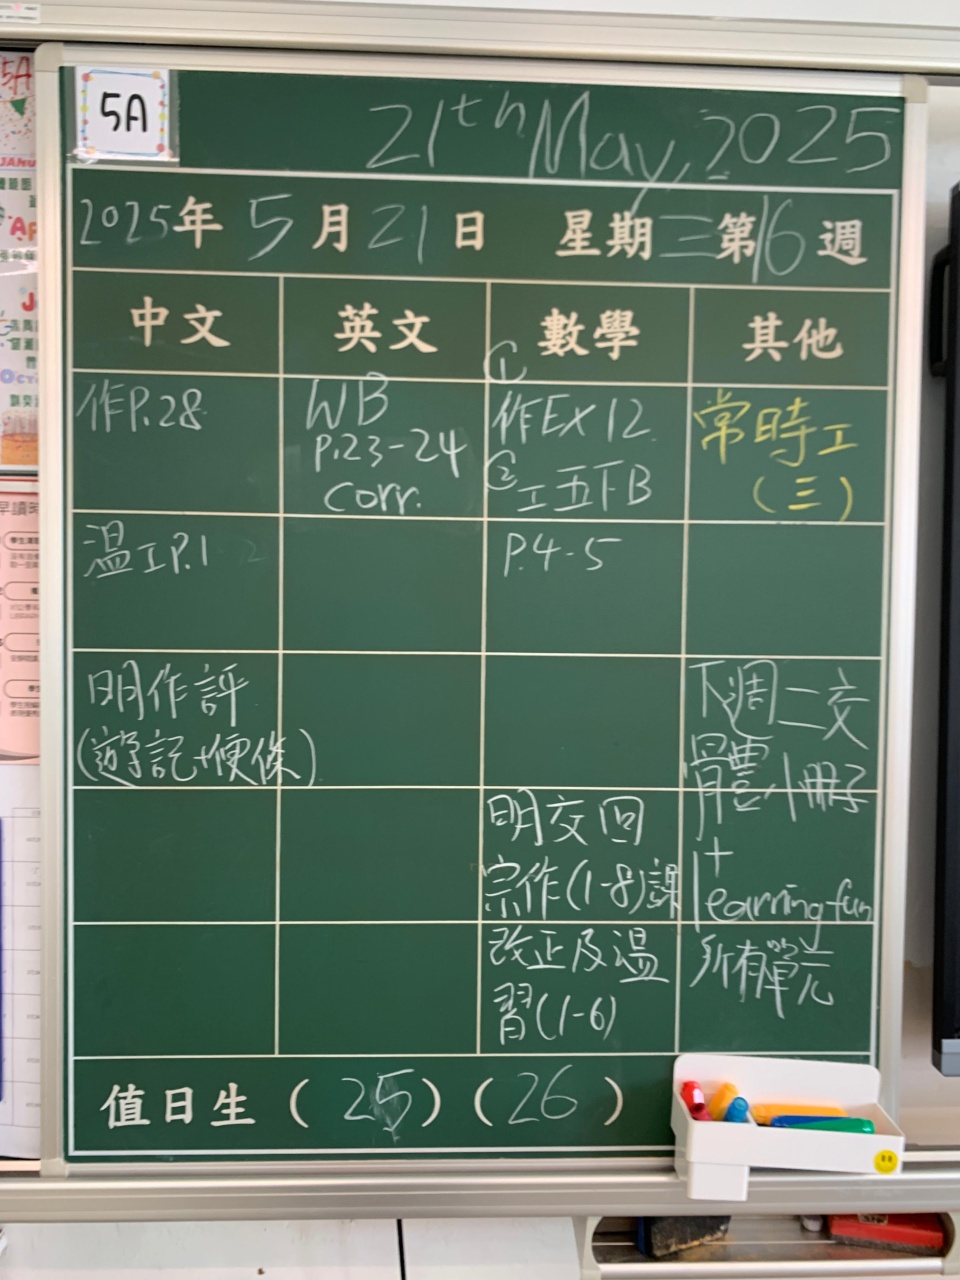 5A
21th May, 2025
2025年 5月21日 星期三 第16週
中文 英文 數學 其他
作P.28
溫工P.1
明作評
(遊記+便條)
WB
P.23-24
corr.
①
作Ex12
②工五下B
P.4-5
明交回
宗作(1-8)課
改正及溫
習(1-6)
常時工
(三)
下週二交
體豐小冊子
+
learning fun
所有單元
值日生(25)(26)